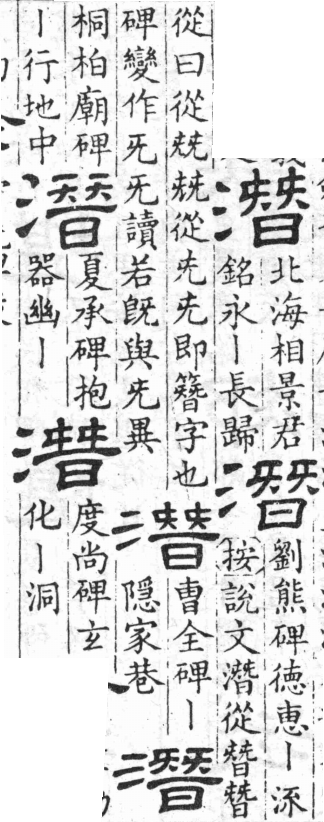 潛
北海相景君
銘永丨長歸
潛
劉熊碑德惠丨㳅
按說文潛從朁朁
從曰從兓兓從兂兂即簪字也
碑變作旡旡讀若旣與兂異
潛
曹全碑丨
隱家巷
潛
桐柏廟碑
丨行地中
潛
夏承碑抱
器幽丨
潛
度尚碑玄
化丨洞